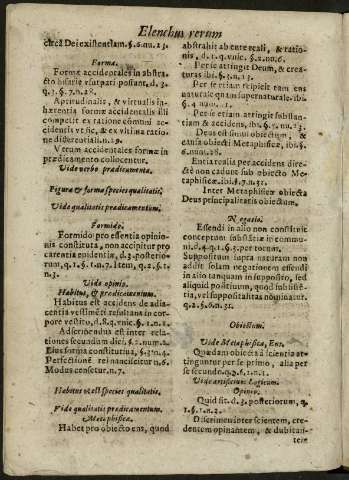 Elenchus rerum
circa Dei existentiam. §. 6. nu. 23.
Forma.
Formæ accidentales in abstra-
cto bifariè usurpari possunt, d. 3.
q. 3. §. 7. n. 28.
Aptitudinalis, & virtualis in-
hærentia formæ accidentalis illi
competit ex ratione communi ac-
cidentis ut sic, & ex ultima ratione
differentiali. n. 29
Verum accidentales formæ in
prædicamento collocentur.
Vide verbo prædicamenta.
Figura & forma species qualitatis.
Vide qualitatis prædicamentum.
Formido.
Formido pro essentia opinio-
nis constituta, non accipitur pro
carentia epidentia, d. 3. posterio-
rum, q. 1. §. 1. n. 7. Item, q. 2. §. 1.
n. 3.
Vide opinio.
Habitus, & prædicamentum.
Habitus est accidens de adia-
centia vestimēti resultans in cor-
pore vestito, d. 8. q. unic. §. 1. n. 1.
Adscribendus est inter rela-
tiones secundum dici. §. 2. num. 2.
Eius forma constitutiva, §. 3. n. 4.
Perfectionē rei nanciscitur n. 6.
Modus censetur n. 7.
Habitus ut est species qualitatis.
Vide qualitatis prædicamentum.
Metaphisica.
Habet pro obiecto ens, quod
abstrahit ab ente reali, & ratio-
nis, d. 1. q. unic. §. 2. nu. 6.
Per se attingit Deum, & crea-
turas ibi. §. 3. n. 13.
Per se etiam respicit tam ens
naturale quam supernaturale. ibi.
§. 4 num. 1.
Per se etiam attingit substan-
tiam & accidens, ibi. §. 5. nu. 23.
Deus est sinul obiectum, &
causa obiecti Metaphisicæ, ibi §.
6. num. 28.
Entia realia per accidens dire-
ctè non cadunt sub obiecto Me-
taphisicæ. ibi. §. 7. n. 31.
Inter Metaphisicæ obiecta
Deus principalitatis obiectum.
Negatio.
Essendi in alio non constituit
conceptum substātiæ in commu-
ni, d. 4. q. 1. §. 3. per totum.
Suppositum supra naturam non
addit solam negationem essendi
in alio tanquam in supposito, sed
aliquid positivum, quod subsisté-
tia, vel suppositalitas nominatur.
q. 2. §. 6. n. 21.
Obiectum.
Vide Metaphisica, Ens.
Quædam obiecta à scientia at-
tinguntur per se primo, alia per
se secundo. q. 2. §. 1. n. 1.
Vide artificium Logicum.
Opinio.
Quid sit. d. 3. posteriorum, q.
1. §. 1. n. 2.
Discrimen inter scientem, cre-
dentem opinantem, & dubitan-
tem